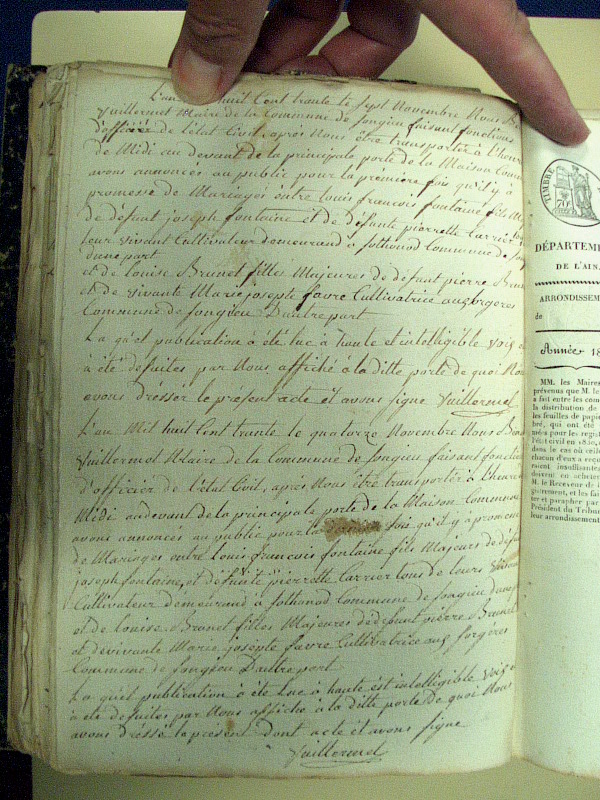 L'an huit Cent trente le sept Novembre Nous
Vuillermet Maire de la Commune de Songieu faisant fonctions
d'officier de l'état Civil, après Nous être transporter à l'heure
de Midi au devant de la principale porte de la Maison Commu
avons annoncés au public pour la première fois qu'il y à
promesse de Mariages entre louis françois fontaine fils M
de défunt joseph fontaine et de défunte pierrette Carrier
leur vivant Cultivateur demeurand à sothonod Commune de
d'une part
et de louise Brunet filles Majeures de défunt pierre Brun
et de vivante Marie josepte favre Cultivatrice aux orgeres
Commune de songieu D'autre part
La qu'el publication à été luc à haute et intelligible voix
à été de suites par Nous affiché à la ditte porte de quoi No
avons dresser le présent acte et avons signe Vuillermet
L'an Mil huit Cent trante le quatorze Novembre Nous
Vuillermet Maire de la Commune de Songieu faisant fonction
d'officier de l'état Civil, après Nous être transporter à l'heure d
Midi au devant de la principale porte de la Maison Commune
avons annoncés au public pour la fois qu'il y a promes
de Mariages entre louis françois fontaine fils Majeurs de défu
joseph fontaine, et defunte pierrette Carrier tous de leurs vivant
Cultivateur demeurand à sothonod Commune de songieu d'une p
et de louise Brunet filles Majeures de défunt pierre Brunet
et de vivante Marie josepte favre Cultivatrice aux forgéres
Commune de songieu D'autre part
La qu'el publication à été luc à haute est intelligible voix e
à été de suites par Nous affiche à la ditte porte de quoi Nous
avons dréssé le présent dont acte et avons signe
Vuillermet
TIMBRE
70
DÉPARTEME
DE L'AIN.
ARRONDISSEM
de
Année 18
MM. les Maires
prévenus que M. le
a fait entre les com
la distribution de
les feuilles de papie
bré, qui ont été
nées pour les regist
l'état civil en 1830,
dans le cas où celle
chacun d'eux a reçu
raient insuffisantes
doivent en acheter
M. le Receveur de l
gistrement, et les fai
ter et parapher par
Président du Tribun
leur arrondissement